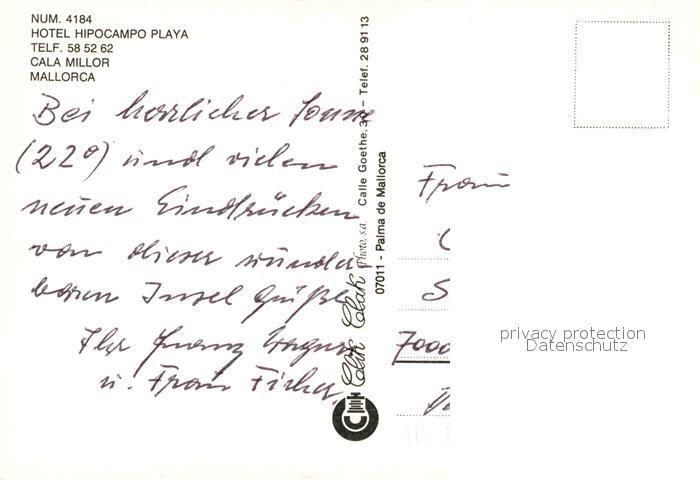 NUM. 4184
HOTEL HIPOCAMPO PLAYA
TELF. 58 52 62
CALA MILLOR
MALLORCA
Bei herrlicher Sonne
(22°) und vielen
neuen Eindrücken
von dieser wunder
baren Insel Grüße
Ihr Franz
u. Frau Fischer
Clik Clak Photo, s.a. Calle Goethe, - Telef. 28 91 13
07011 - Palma de Mallorca
Frau
S
7000
privacy protection
Datenschutz